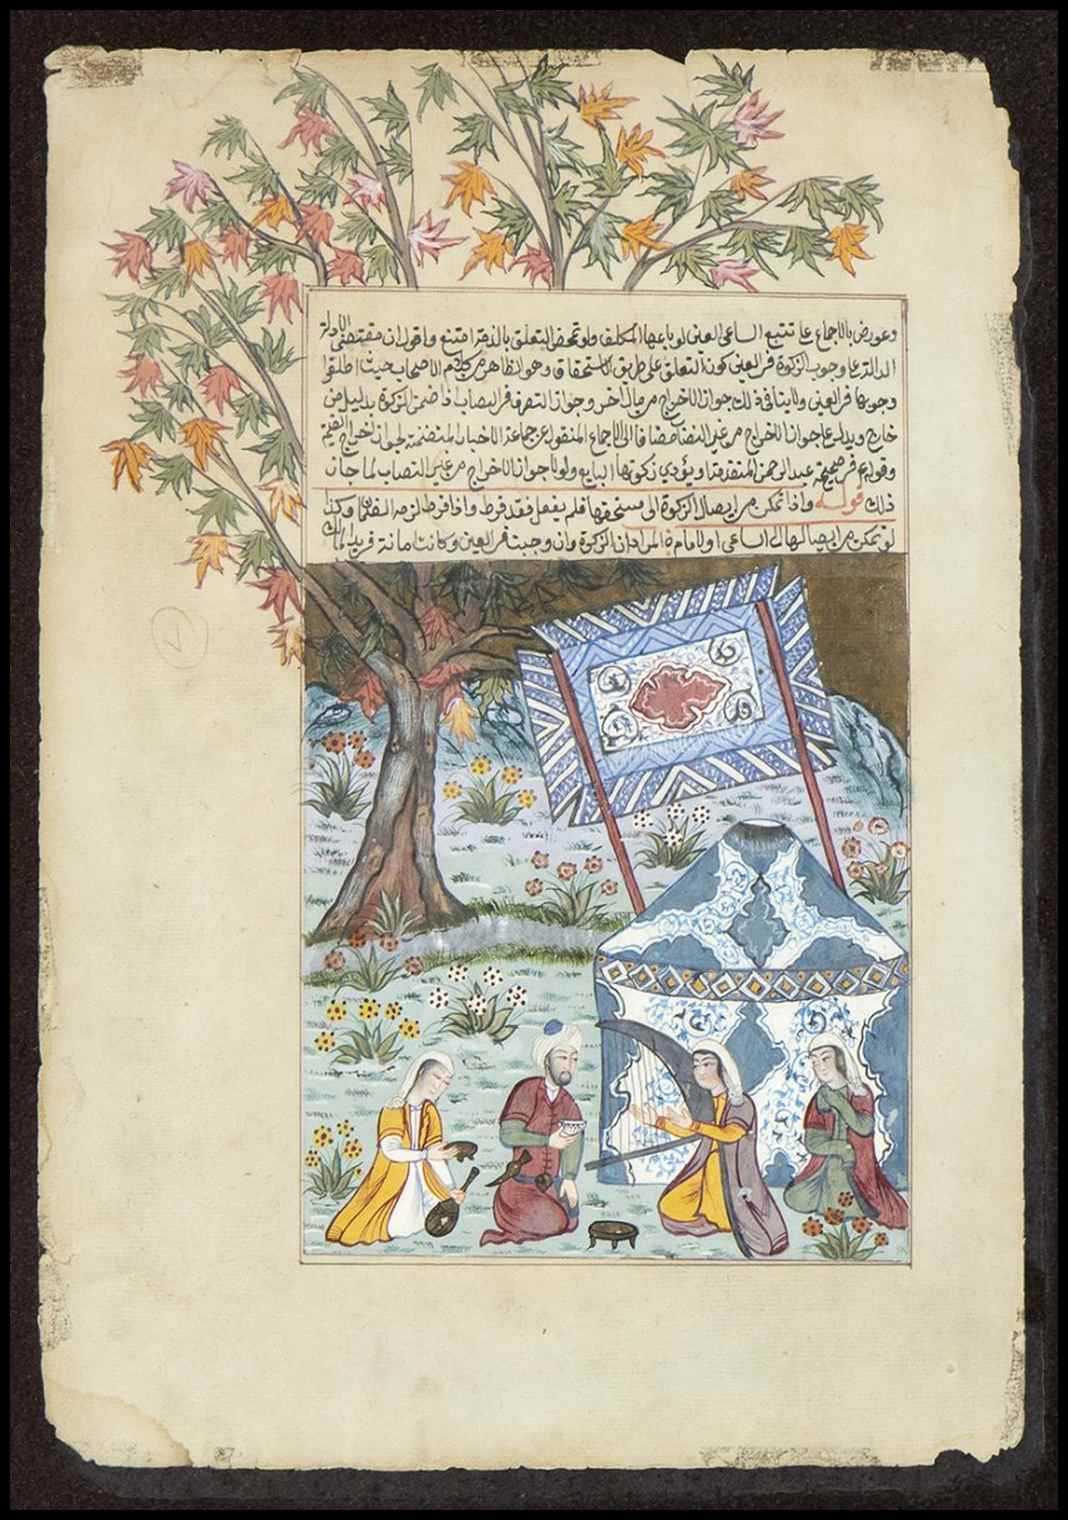 وعورض بالاجماع على تتبع الساعى العين لو باعها المكلف ولو تمحض التعلق بالذمة امتنع واقول ان مقتضى الادلة
الدالة على وجوب الزكوة فى العين كون التعلق على طريق الاستحقاق وهو الظاهر من كلام الاصحاب حيث اطلقوا
وجوبها فى العين ولا ينافى ذلك جواز الاخراج من مال اخر وجواز التصرف فى النصاب اذا ضمن الزكوة بدليل من
خارج ويدل على جواز الاخراج من غير النصاب مضافا الى الاجماع المنقول عن جماعة الاخبار المتضمنة لجواز اخراج القيمة
وقوله ع فى صحيحة عبد الرحمن المتقدمة او يؤدى زكوتها البايع ولولا جواز الاخراج من غير النصاب لما جاز
ذلك قوله واذا تمكن من ايصال الزكوة الى مستحقها فلم يفعل فقد فرط واذا فرط لزمه الضمان وكذا
لو تمكن من ايصالها الى الساعى او الامام ة المراد ان الزكوة وان وجبت فى العين وكانت امانة فى يد المالك